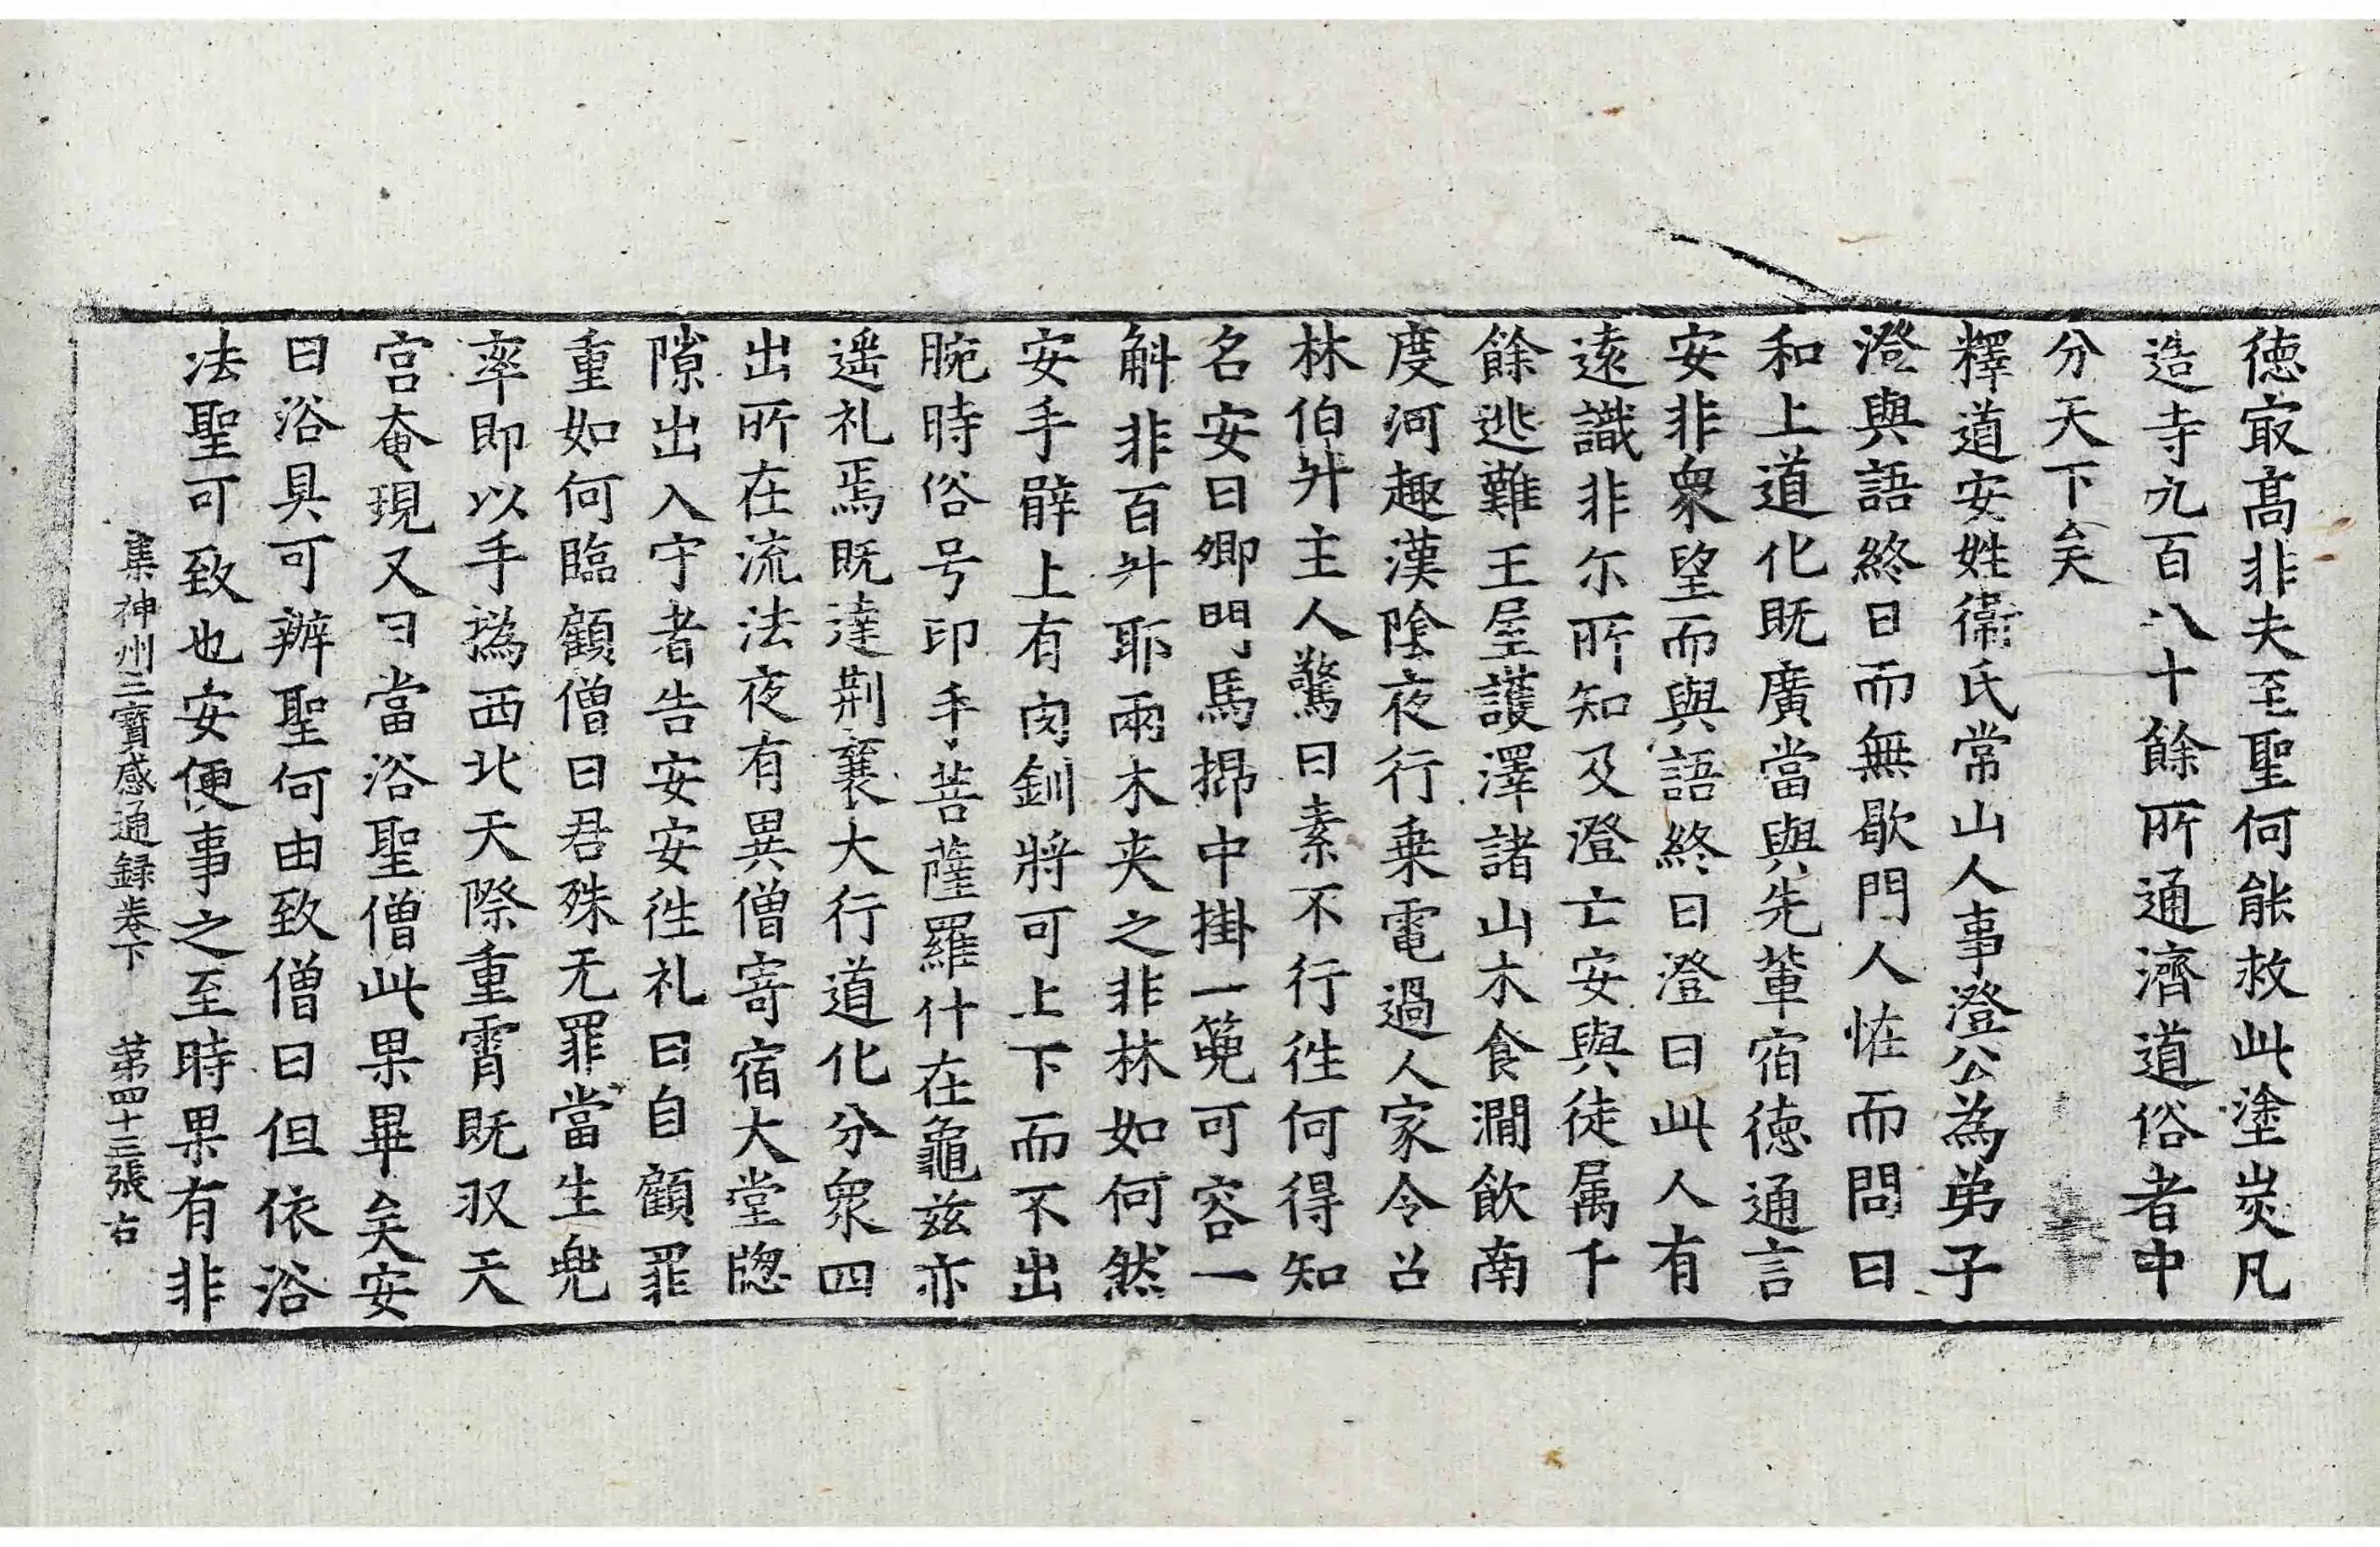 德冣高非夫至聖何能救此塗炭凡
造寺九百八十餘所通濟道俗者中
分天下矣
釋道安姓衞氏常山人事澄公為弟子
澄與語終日而無歇門人恠而問曰
和上道化既廣當與先輩宿德通言
安非衆望而與語終日澄曰此人有
遠識非尓所知及澄亡安與徒属千
餘逃難王屋護澤諸山木食澗飲南
度河趣漢陰夜行乗電過人家令召
林伯升主人驚曰素不行徃何得知
名安曰卿門馬㭿中掛一蒬可容一
斛非百升耶兩木夾之非林如何然
安手臂上有肉釧將可上下而不出
腕時俗号印手菩薩羅什在龜兹亦
遥礼焉既達荆襄大行道化分衆四
出所在流法夜有異僧寄宿大堂牎
隙出入守者告安安徃礼曰自顧罪
重如何臨顧僧曰君殊无罪當生兠
率即以手撝西北天際重霄既収天
宫奄現又曰當浴聖僧此果畢矣安
曰浴具可辦聖何由致僧曰但依浴
法聖可致也安便事之至時果有非
集神州三寶感通録卷下　第四十三張右